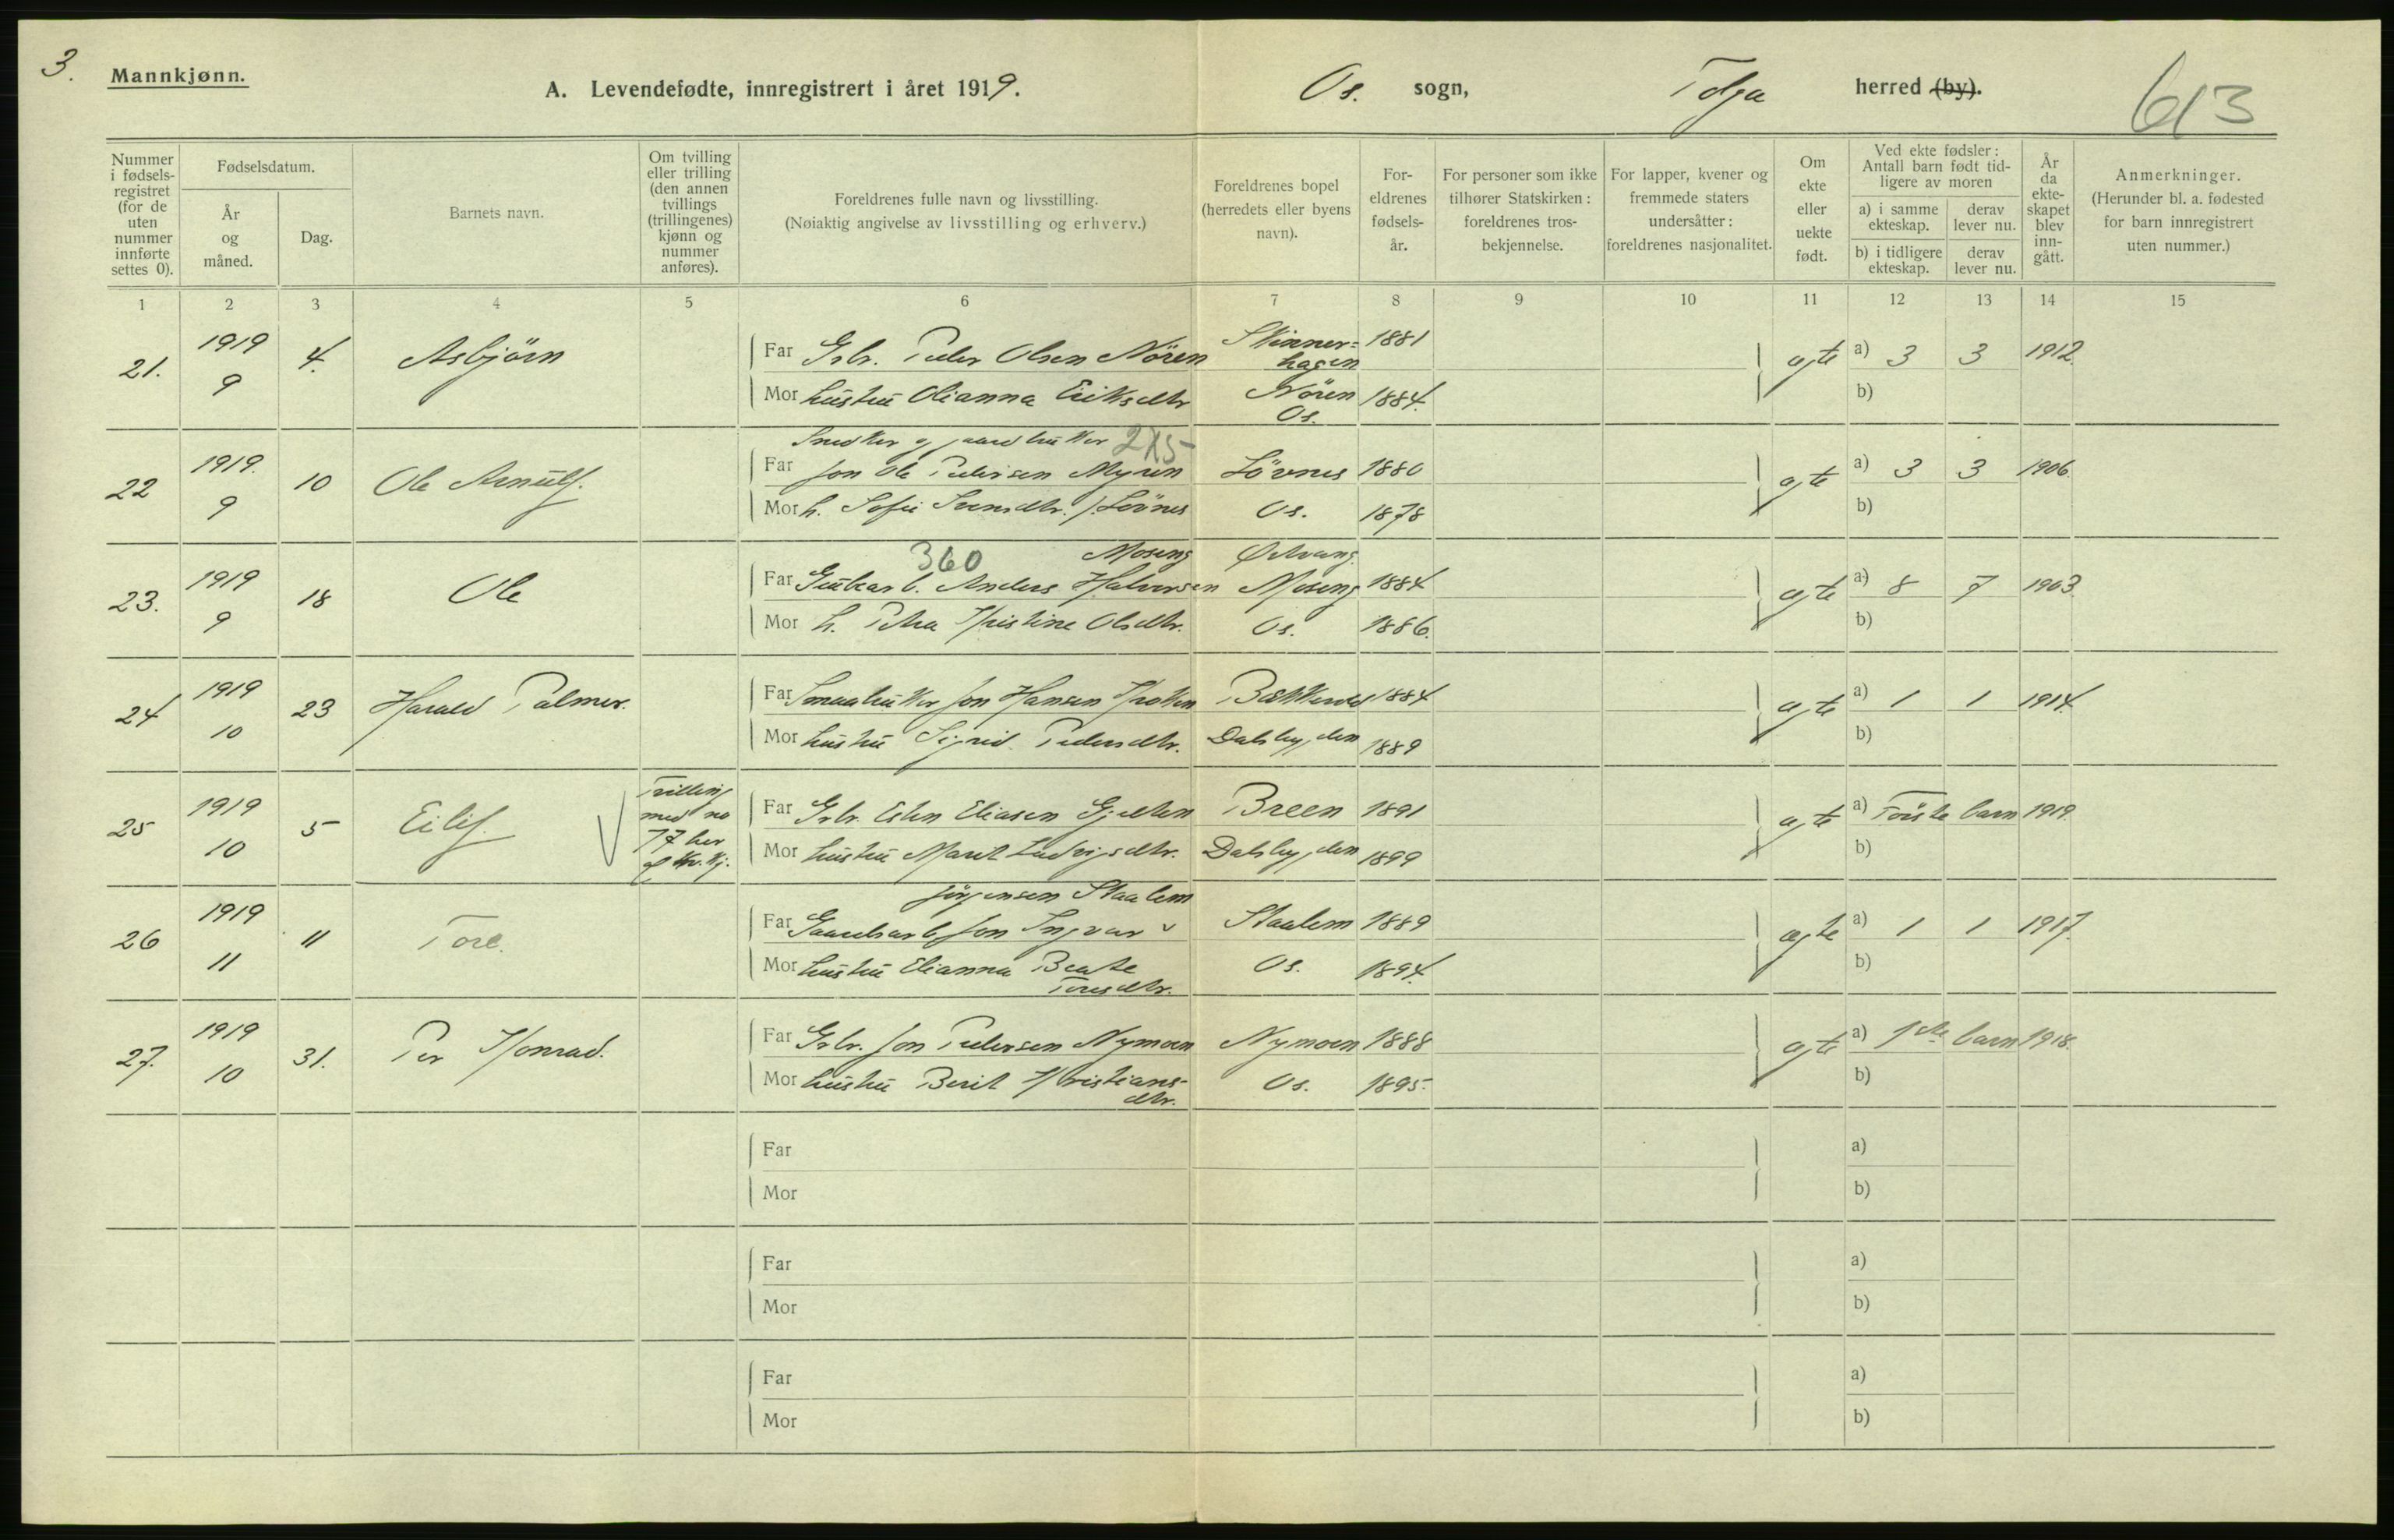 3.
Mannkjønn.
A. Levendefødte, innregistrert i året 1919.
Os. sogn,
Tolga herred (by).
613
Nummer i fødsels-registret (for de uten nummer innførte settes 0).
Fødselsdatum.
År og måned.
Dag.
Barnets navn.
Om tvilling eller trilling (den annen tvillings (trillingenes) kjønn og nummer anføres).
Foreldrenes fulle navn og livsstilling.
(Nøiaktig angivelse av livsstilling og erhverv.)
Foreldrenes bopel (herredets eller byens navn).
For-eldrenes fødsels-år.
For personer som ikke tilhører Statskirken: foreldrenes tros-bekjennelse.
For lapper, kvener og fremmede staters undersåtter: foreldrenes nasjonalitet.
Om ekte eller uekte født.
Ved ekte fødsler: Antall barn født tid-ligere av moren
a) i samme ekteskap.
derav lever nu.
b) i tidligere ekteskap.
derav lever nu.
År da ekte-skapet blev inn-gått.
Anmerkninger.
(Herunder bl. a. fødested for barn innregistrert uten nummer.)
1 2 3 4 5 6 7 8 9 10 11 12 13 14 15
21. 1919 9 4. Asbjörn
Far Grbr. Peder Olsen Nören Skinner=hagen 1881
Mor hustru Olianna Eriksdtr Nören Os. 1884.
ægte a) 3 3 1912.
b)
Snedker og gaardbruker 2X5-
22 1919. 9 10 Ole Arnulf.
Far Jon Ole Pedersen Myren Lövnes 1880
Mor h. Sofie Svensdtr. Lövnes Os. 1878
ægte a) 3 3 1906.
b)
360 Moseng
23. 1919 9 18 Ole
Far Anders Halvorsen Moseng 1884
Mor h. Petra Kristine Olsdtr. Os. 1886.
ægte a) 8 7 1903.
b)
24 1919 10 23 Harald Palmer.
Far Smaabruker Jon Hansen 1884
Mor hustru Sigrid Pedersdtr. Dalsbygden 1889
ægte a) 1 1 1914.
b)
25 1919 10 5 Eilif.
Trilling med no 7 her af kv. kj.
Far Grbr. Esten Eliasen Gjelten Breen 1891
Mor hustru Marit Ludvigsdtr. Dalsbygden 1899
ægte a) Förste barn 1919.
b)
Jörgensen Staalem
26 1919 11 11 Tore.
Far Gaardbarb. Jon Ingvar v Staalem 1889
Mor hustru Elianna Beate Toresdtr. Os. 1894.
ægte a) 1 1 1917.
b)
27. 1919 10 31. Per Konrad.
Far Grbr. Jon Pedersen Nymoen Nymoen 1888
Mor hustru Berit Kristians-dtr. Os. 1895.
ægte a) 1ste barn 1918.
b)
Far a)
Mor b)
Far a)
Mor b)
Far a)
Mor b)